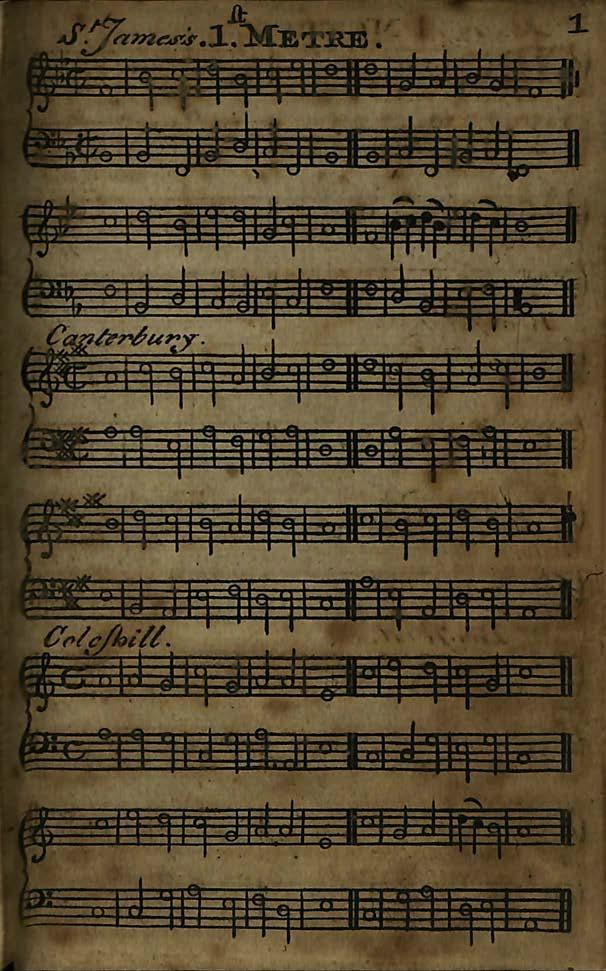 St James's. 1.st METRE. 1
Canterbury.
Coleſhill.